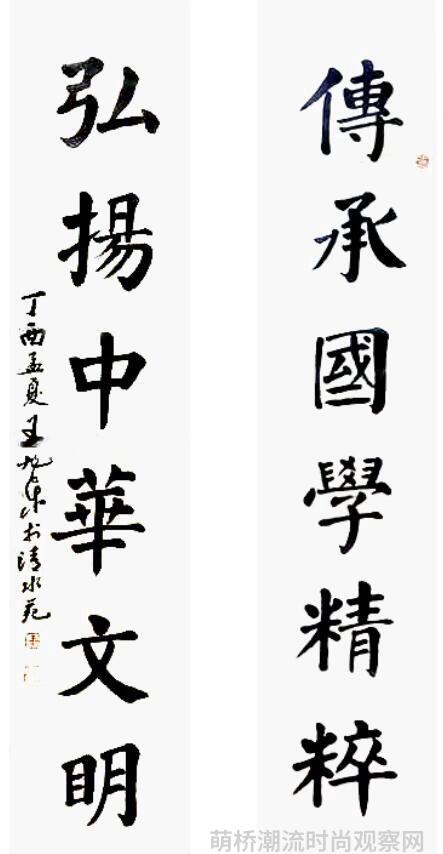 傳承國學精粹
弘揚中華文明
丁酉孟夏王於清水苑
萌桥潮流时尚观察网